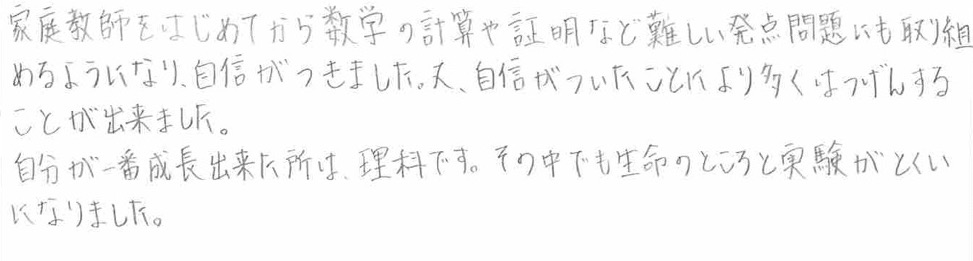 家庭教師をはじめてから数学の計算や証明など難しい発点問題にも取り組
めるようになり、自信がつきました。又、自信がついたことにより多くはつげんする
ことが出来ました。
自分が一番成長出来た所は、理科です。その中でも生命のところと実験がとくい
になりました。